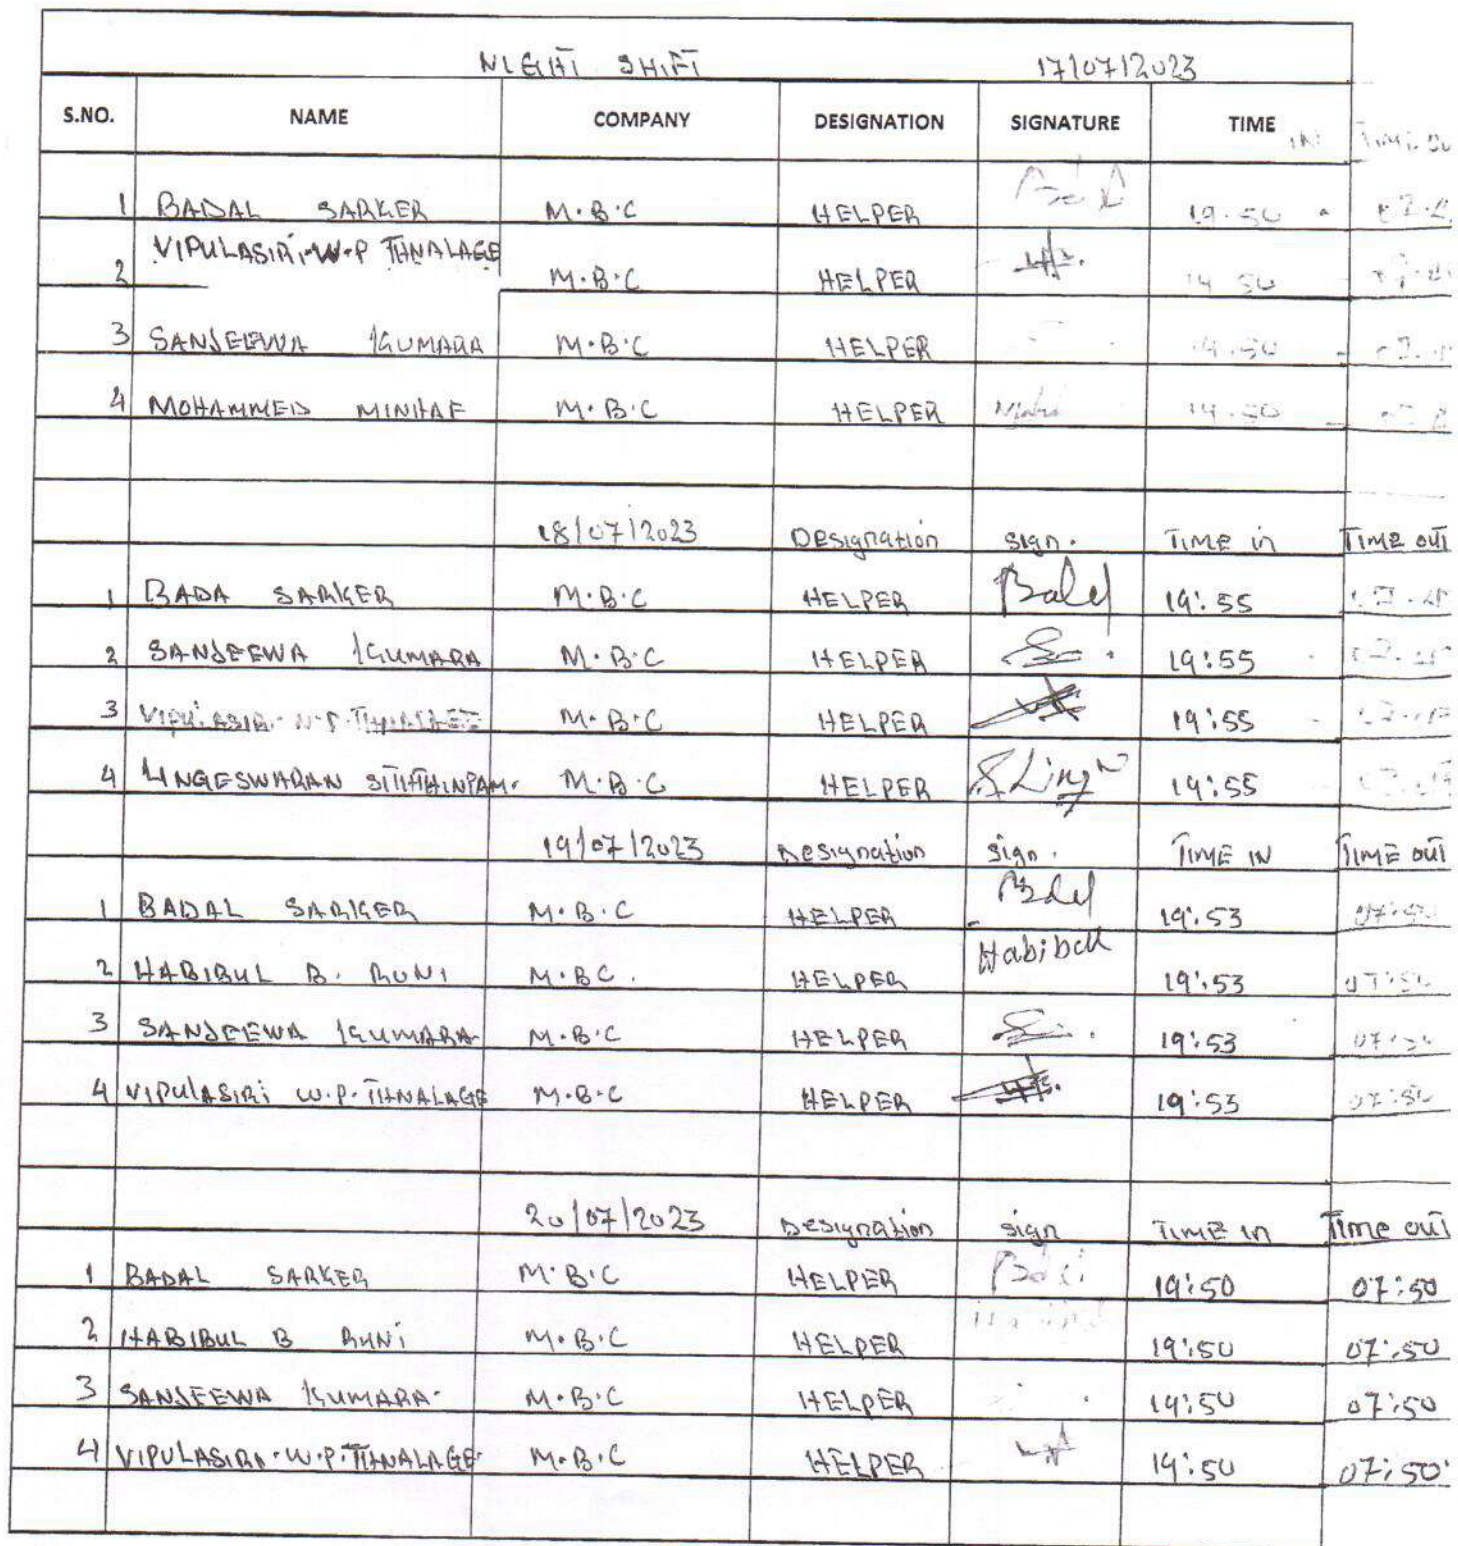 NIGHT SHIFT 17/07/2023
S.NO. NAME COMPANY DESIGNATION SIGNATURE TIME IN TIME OU
1 BADAL SARKER M.B.C HELPER 19.50
2 VIPULASIRI.W.P THNALAGE M.B.C HELPER 19 50
3 SANJEEWA KUMARA M.B.C HELPER 19.50
4 MOHAMMED MINHAF M.B.C HELPER 19.50
18/07/2023 Designation sign. Time in Time out
1 BADA SARKER M.B.C HELPER Badal 19:55
2 SANJEEWA KUMARA M.B.C HELPER 19:55
3 M.B.C HELPER 19:55
4 LINGESWARAN M.B.C HELPER 19:55
19/07/2023 Designation sign. TIME IN TIME OUT
1 BADAL SARKER M.B.C HELPER 19:53
2 HABIBUL B. RUNI M.B.C. HELPER Habibul 19:53 07:50
3 SANJEEWA KUMARA M.B.C HELPER 19:53
4 VIPULASIRI W.P. THNALAGE M.B.C HELPER 19:53 07:50
20/07/2023 Designation sign Time in Time out
1 BADAL SARKER M.B.C HELPER 19:50 07:50
2 HABIBUL B RUNI M.B.C HELPER 19:50 07:50
3 SANJEEWA KUMARA M.B.C HELPER 19:50 07:50
4 VIPULASIRI.W.P.THNALAGE M.B.C HELPER 19:50 07:50